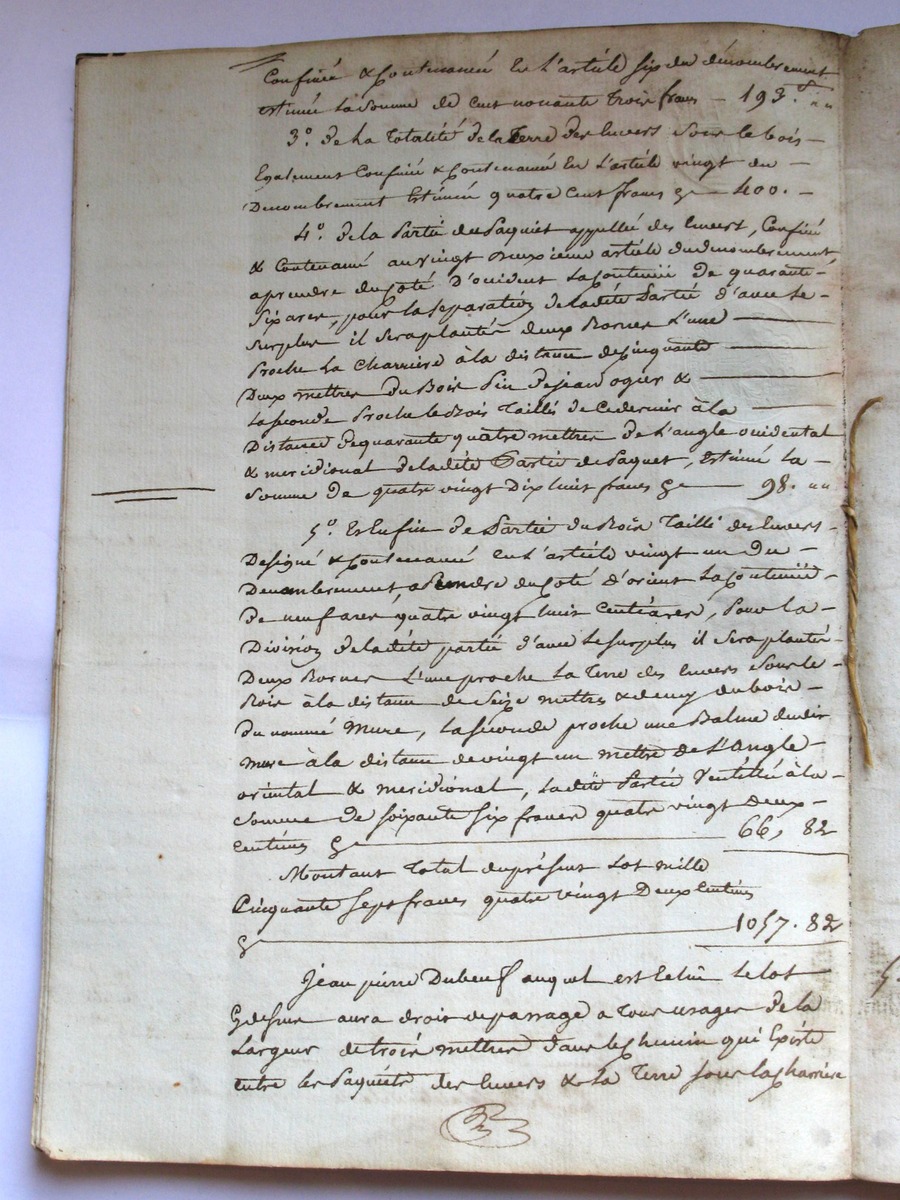 Confinée & Contenancée en L'article six du dénombrement
estimée la somme de cent nonante trois francs — 193. "
3.° de la totalité de la Terre des Envers sous le bois —
Egalement confinée & Contenancée en L'article vingt du —
Denombrement Estimée quatre cent francs — 400. —
4.° de la partie du Paquiet appellée des Envers, Confiné
& Contenancé au vingt deuxieme article du denombrement,
aprendre du coté D'occident la contenüe de quarante-
six ares, pour la separation de ladite Partie d'avec le-
surplus il sera planté deux Bornes L'une
proche La Charriere à la distance de cinquante
Deux mettres du Bois Pin de jean ogier &
La seconde Proche le Bois Taillis de ce dernier à la
Distance de quarante quatre mettres de L'angle occidental
& meridional de la dite Partie de Paquet, Estimée la —
Somme de quatre vingt Dix huit francs — 98. "
5.° Et Enfin de Partie du Bois Taillis des Envers
Designé & Contenancé en L'article vingt un du —
Denombrement, a Prendre du coté d'orient La Contenüe —
De neuf ares quatre vingt huit Centiares, Pour la —
Division de la dite partie d'avec le surplus il sera planté-
Deux Bornes L'une proche La Terre des Envers sous le
Bois à la distance de Seize mettres & demy du bois —
Du nommé Mure, La seconde proche une Balme dudit
Mure à la distance de vingt un mettre de L'Angle
oriental & meridional, la dite Partie à la —
Somme de soixante six francs quatre vingt deux-
centimes — 66, 82
Montant Total du présent Lot mille
Cinquante sept francs quatre vingt Deux Centimes
— 1057. 82
Jean pierre Dubeuf auquel est Echu le lot
Cydessus aura droit de passage a tous usages de la
Largeur de trois mettres dans le Chemin qui Existe
entre les Paquiets des Envers & La Terre sous la Charriere